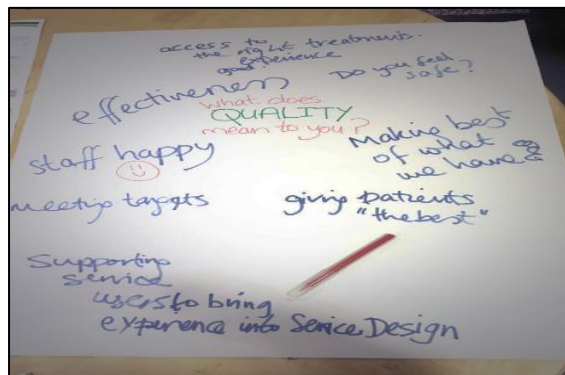 access to
the right treatment.
good experience
Do you feel
safe?
effectiveness
what does
QUALITY
mean to you?
staff happy
Making best
of what
we have
meeting targets
giving patients
"the best"
Supporting
service
users to bring
experience into Service Design